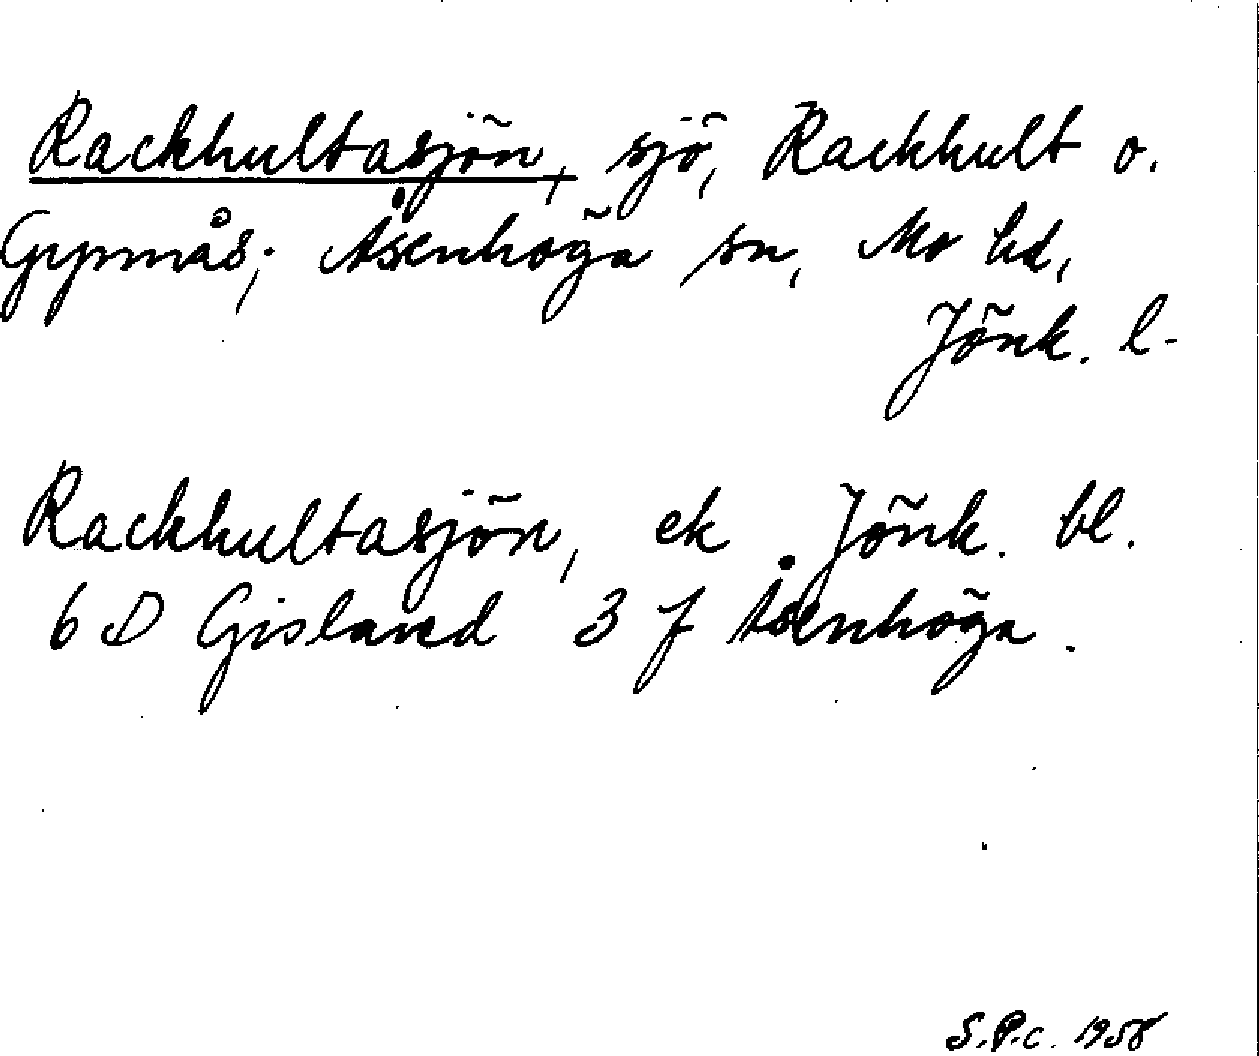 Rackhultasjön, sjö, Rackhult o.
Gypmås; Åsenhöga sn, Mo hd,
Jönk. l.
Rackhultasjön, ek Jönk. bl.
6 D Gislaved 3 f Åsenhöga.
S.P.c. 1958